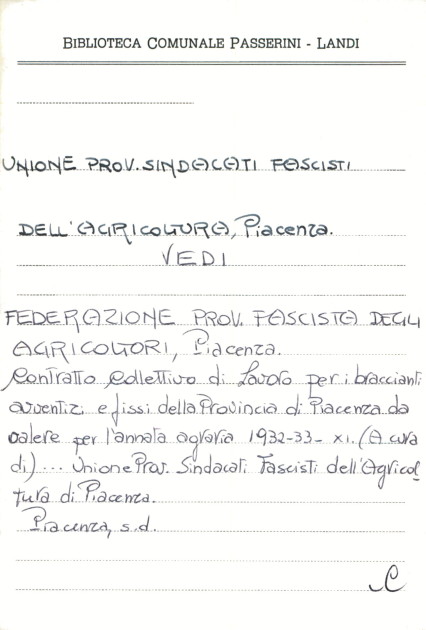 BIBLIOTECA COMUNALE PASSERINI - LANDI
UNIONE PROV. SINDACATI FASCISTI
DELL'AGRICOLTURA, Piacenza.
VEDI
FEDERAZIONE PROV. FASCISTA DEGLI
AGRICOLTORI, Piacenza.
Contratto Collettivo di Lavoro per i braccianti
avventizi e fissi della Provincia di Piacenza da
valere per l'annata agraria 1932-33- XI. (A cura
di) ... Unione Prov. Sindacati Fascisti dell'Agricol
tura di Piacenza.
Piacenza, s.d.
C